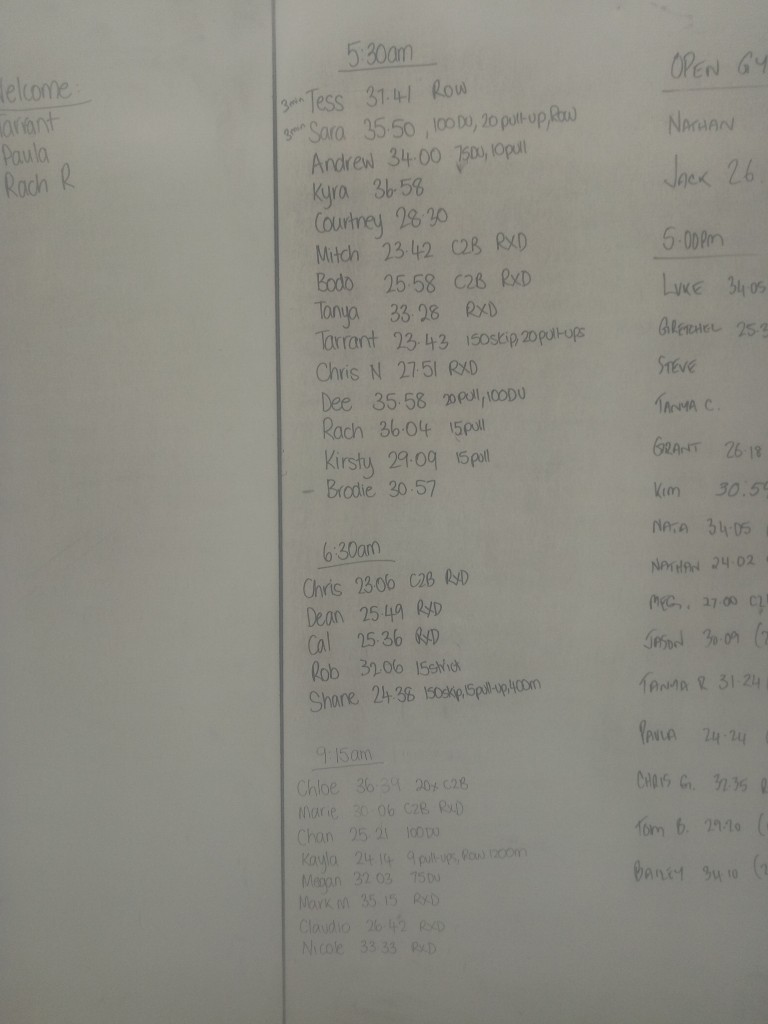 Welcome:
Tarrant
Paula
Rach R
5:30am
3min Tess 37.41 Row
3min Sara 35.50, 100DU, 20pull-up, Row
Andrew 34.00 75DU, 10pull
Kyra 36.58
Courtney 28.30
Mitch 23.42 C2B RXD
Bodo 25.58 C2B RXD
Tanya 33.28 RXD
Tarrant 23.43 150skip, 20pull-ups
Chris N 27.51 RXD
Dee 35.58 20pull, 100DU
Rach 36.04 15pull
Kirsty 29.09 15pull
- Brodie 30.57
6:30am
Chris 23.06 C2B RXD
Dean 25.49 RXD
Cal 25.36 RXD
Rob 32.06 15strict
Shane 24.38 150skip, 15pull-up, 400m
9:15am
Chloe 36.39 20x C2B
Marie 30.06 C2B RXD
Chan 25.21 100DU
Kayla 24.14 9pull-ups, Row 1200m
Megan 32.03 75DU
Mark M 35.15 RXD
Claudio 26.42 RXD
Nicole 33.33 RXD
OPEN
NATHAN
JACK 26.
5:00pm
LUKE 34.05
GRETCHEL
STEVE
TANYA C.
GRANT 26.18
KIM 30.59
34.05
NATHAN 24.02
MEG. 27.00
JASON 30.09
TANYA R 31.24
PAULA 24.24
CHRIS G. 32.35
TOM B. 29.20
BAILEY 34.10